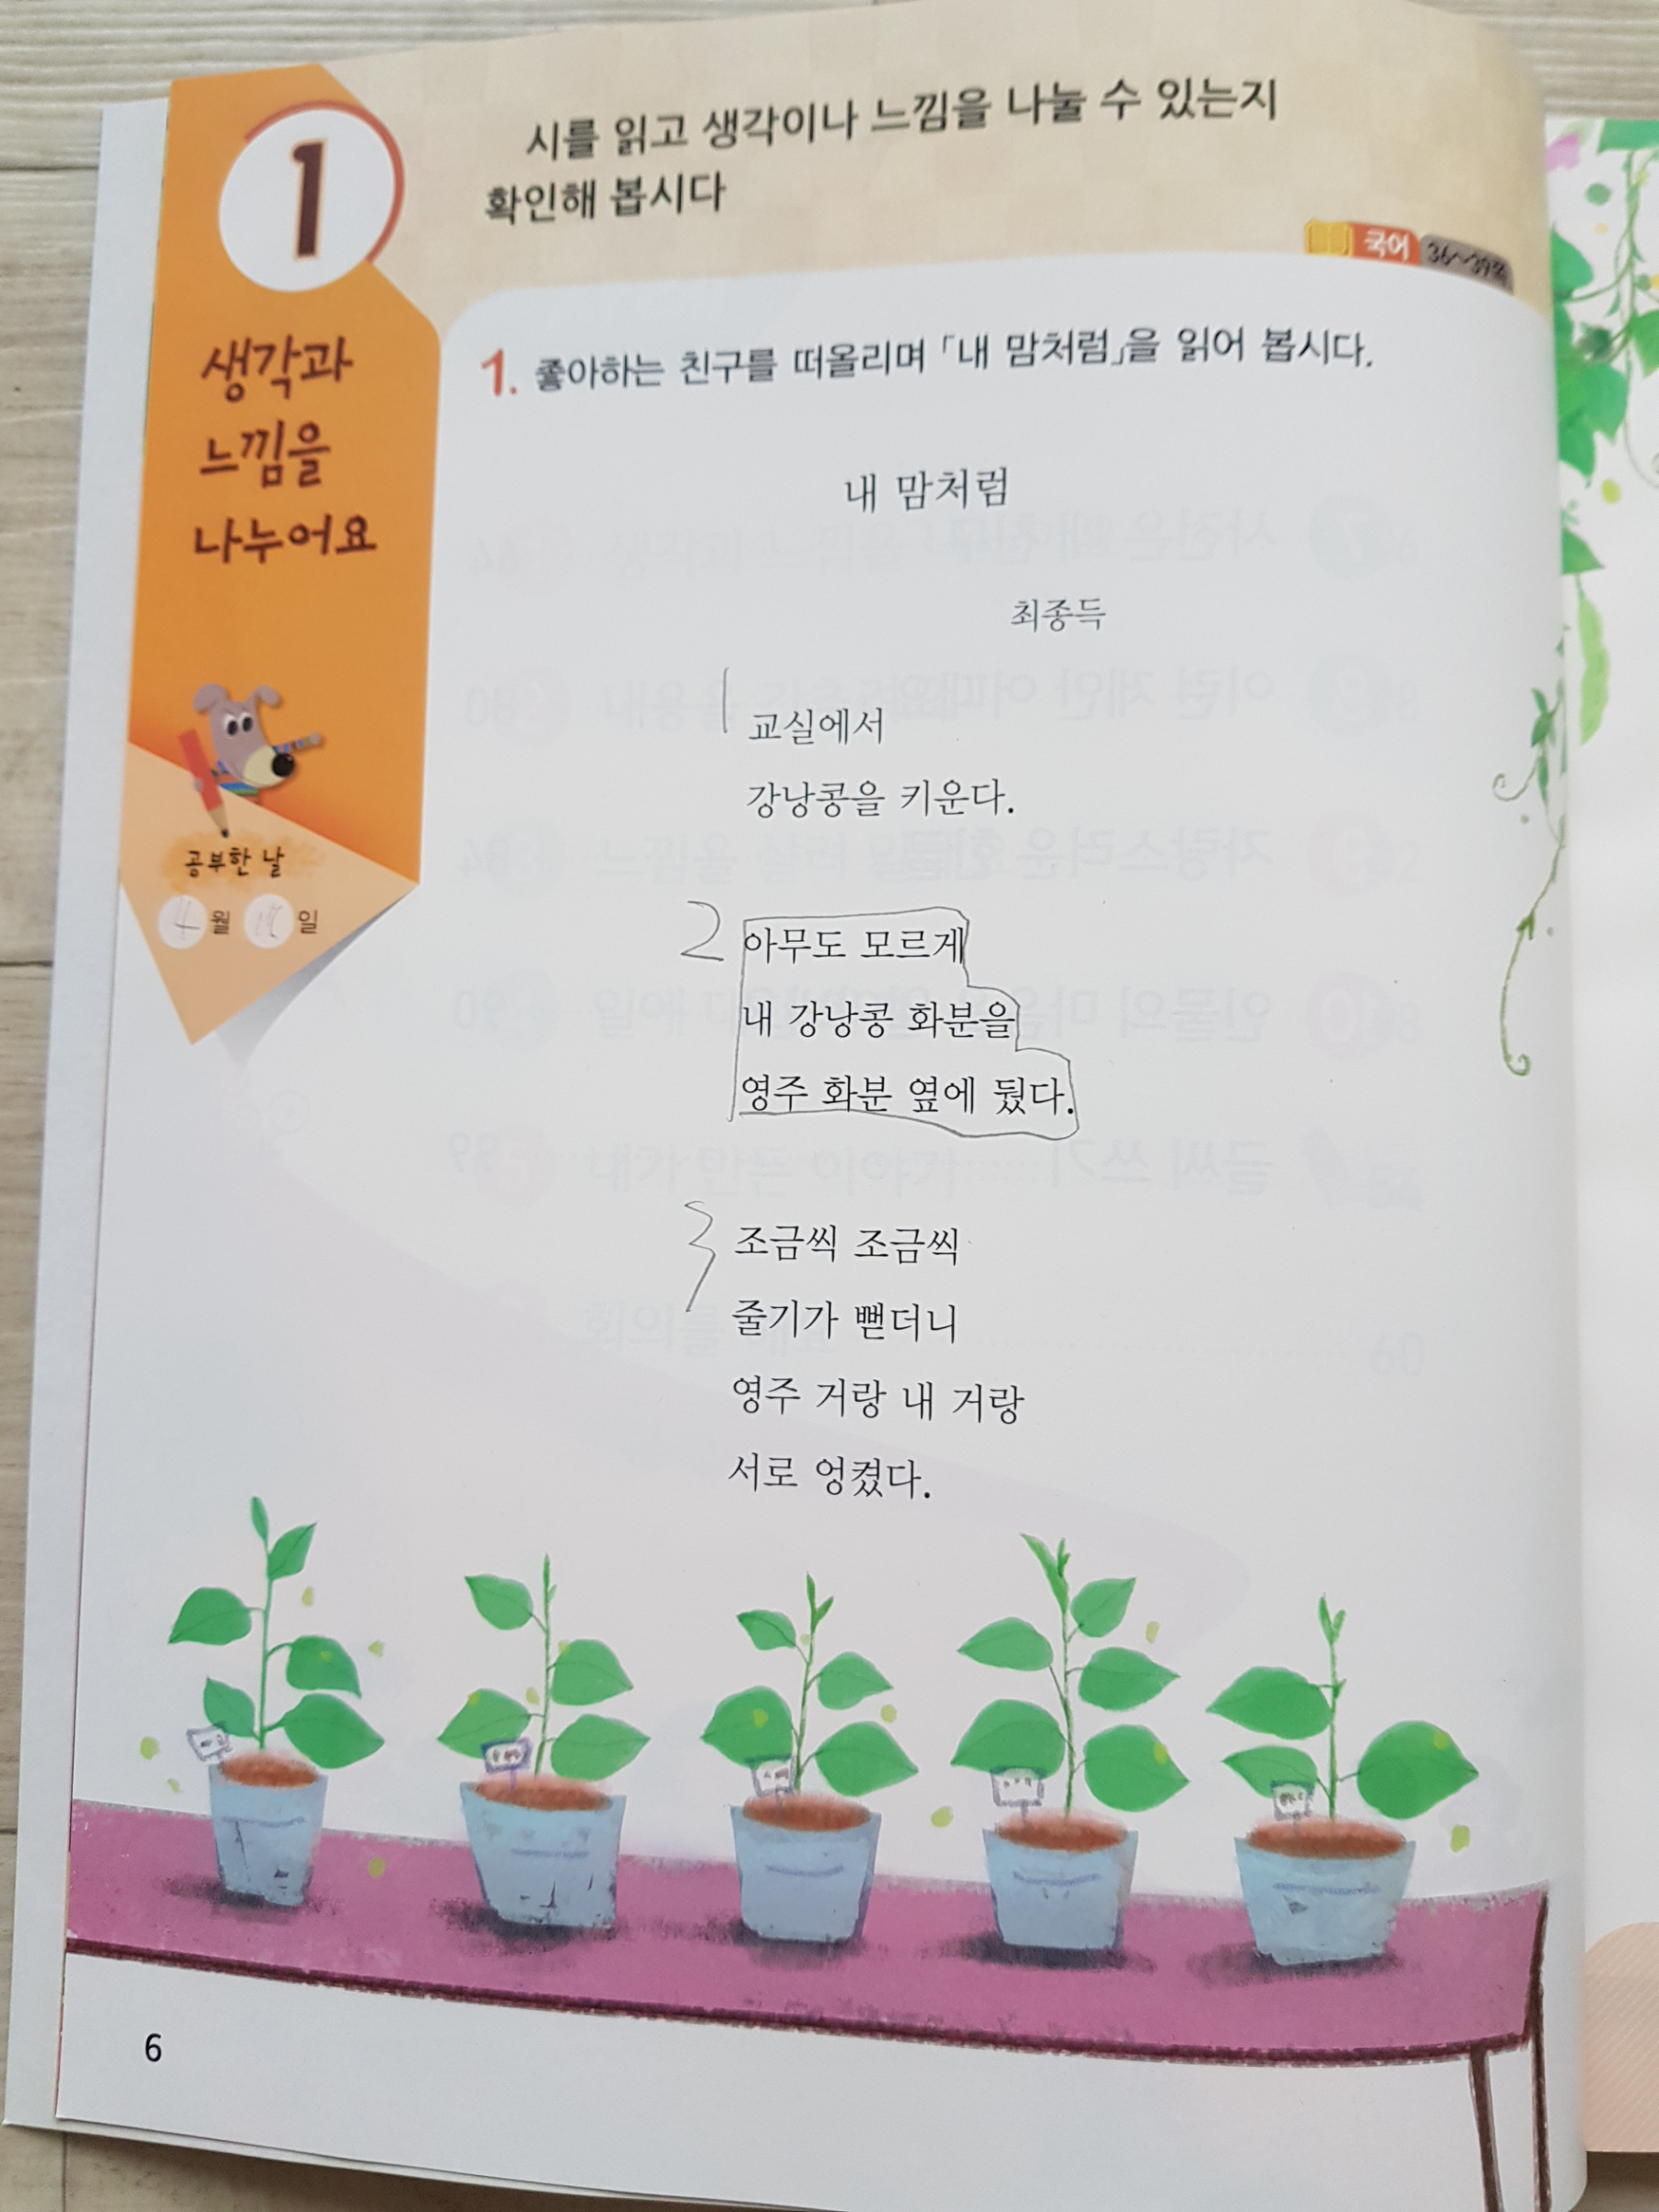 1
시를 읽고 생각이나 느낌을 나눌 수 있는지
확인해 봅시다
국어 36~39쪽
생각과
느낌을
나누어요
공부한 날
4월 일
1. 좋아하는 친구를 떠올리며 「내 맘처럼」을 읽어 봅시다.
내 맘처럼
최종득
1
교실에서
강낭콩을 키운다.
2
아무도 모르게
내 강낭콩 화분을
영주 화분 옆에 뒀다.
3
조금씩 조금씩
줄기가 뻗더니
영주 거랑 내 거랑
서로 엉켰다.
6